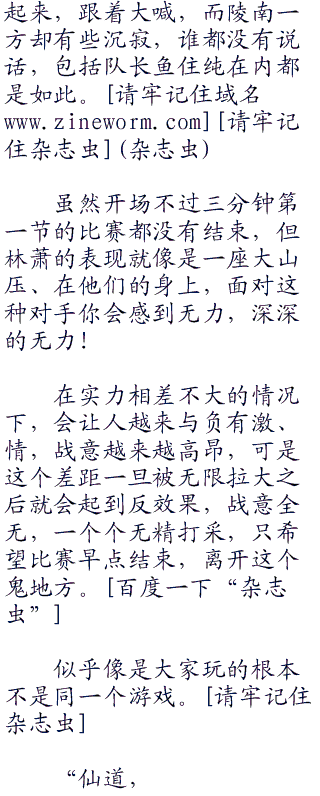 起来，跟着大喊，而陵南一
方却有些沉寂，谁都没有说
话，包括队长鱼住纯在内都
是如此。[请牢记住域名
www.zineworm.com][请牢记
住杂志虫](杂志虫)
虽然开场不过三分钟第
一节的比赛都没有结束，但
林萧的表现就像是一座大山
压、在他们的身上，面对这
种对手你会感到无力，深深
的无力！
在实力相差不大的情况
下，会让人越来与负有激、
情，战意越来越高昂，可是
这个差距一旦被无限拉大之
后就会起到反效果，战意全
无，一个个无精打采，只希
望比赛早点结束，离开这个
鬼地方。[百度一下“杂志
虫”]
似乎像是大家玩的根本
不是同一个游戏。[请牢记住
杂志虫]
“仙道，